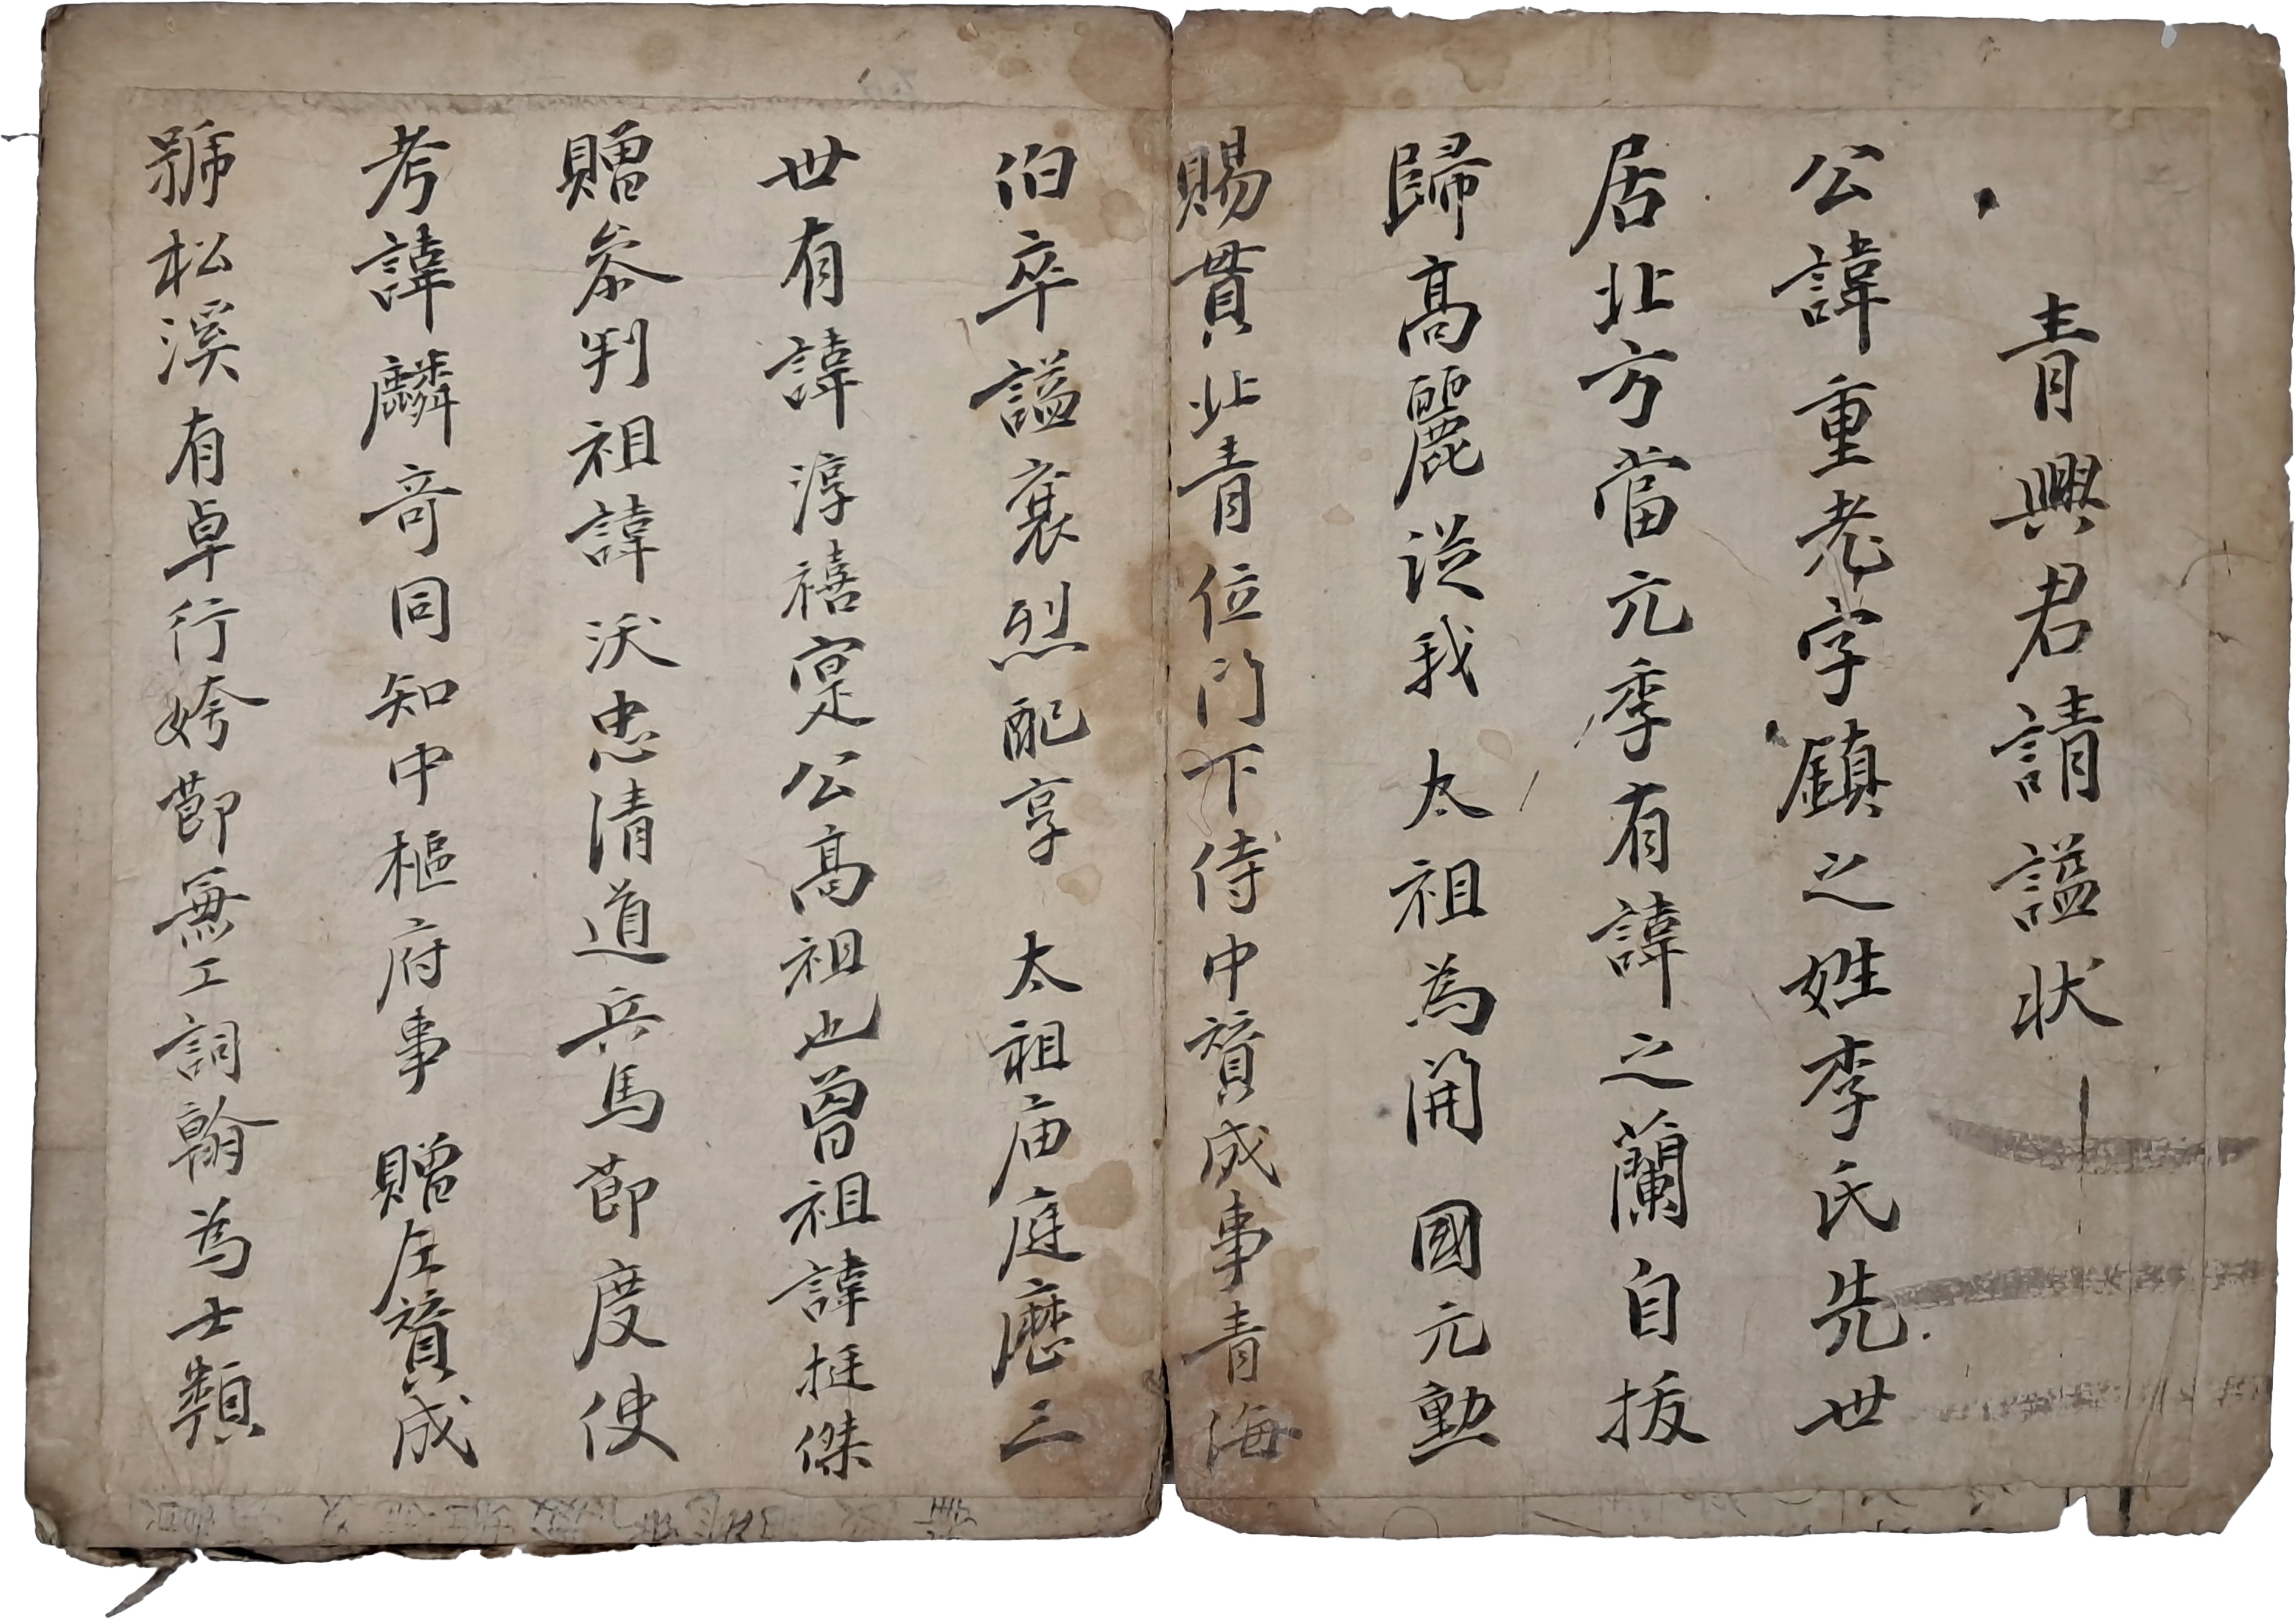 青興君請謚狀
公諱重老字鎭之姓李氏先世
居北方當元季有諱之蘭自拔
歸高麗從我 太祖為開 國元勳
賜貫北靑位門下侍中贊成事青海
伯卒謚襄烈配享 太祖庙庭歷三
世有諱淳禧寔公高祖也曾祖諱挺傑
贈叅判祖諱沃忠清道兵馬節度使
考諱麟奇同知中樞府事 贈左贊成
號松溪有卓行姱節兼工詞翰為士類